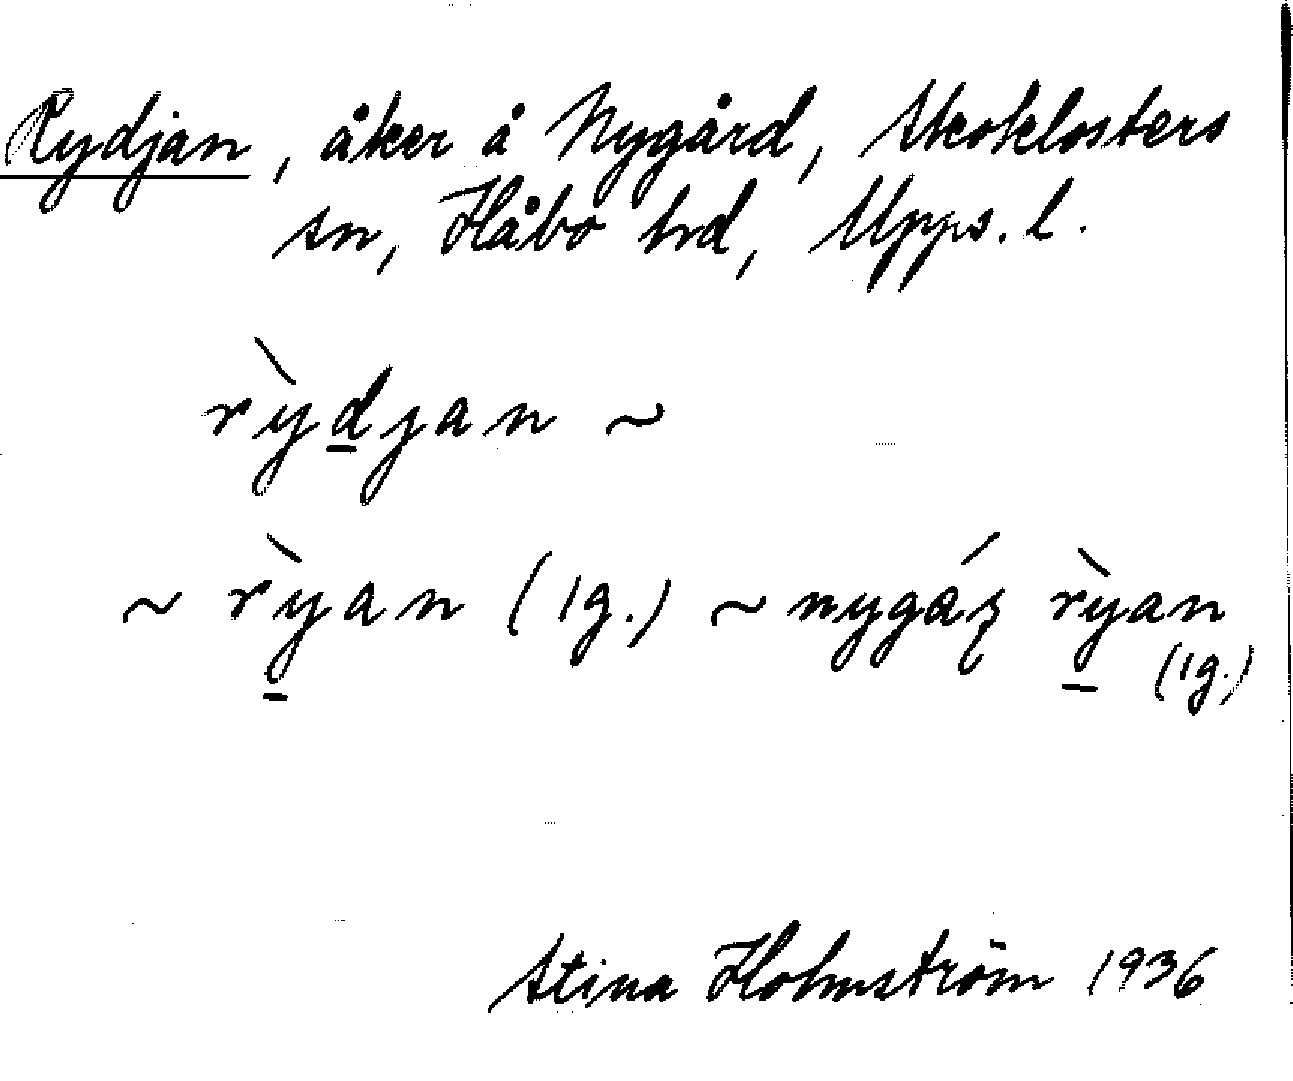 Rydjan, åker å Nygård, Skoklosters
sn, Håbo hd, Upps. l.
rỳdjan ~
~ rỳan (1g.) ~ nygáʒ rỳan
(1g.)
Stina Holmström 1936